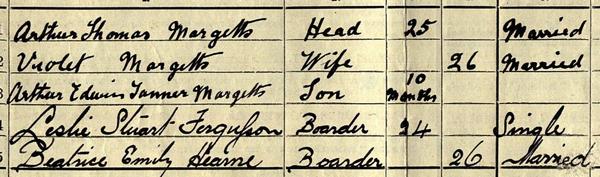 1 Arthur Thomas Margetts Head 25 Married
2 Violet Margetts Wife 26 Married
3 Arthur Edwin Tanner Margetts Son 10 Months
4 Leslie Stuart Fergusson Boarder 24 Single
5 Beatrice Emily Hearne Boarder 26 Married